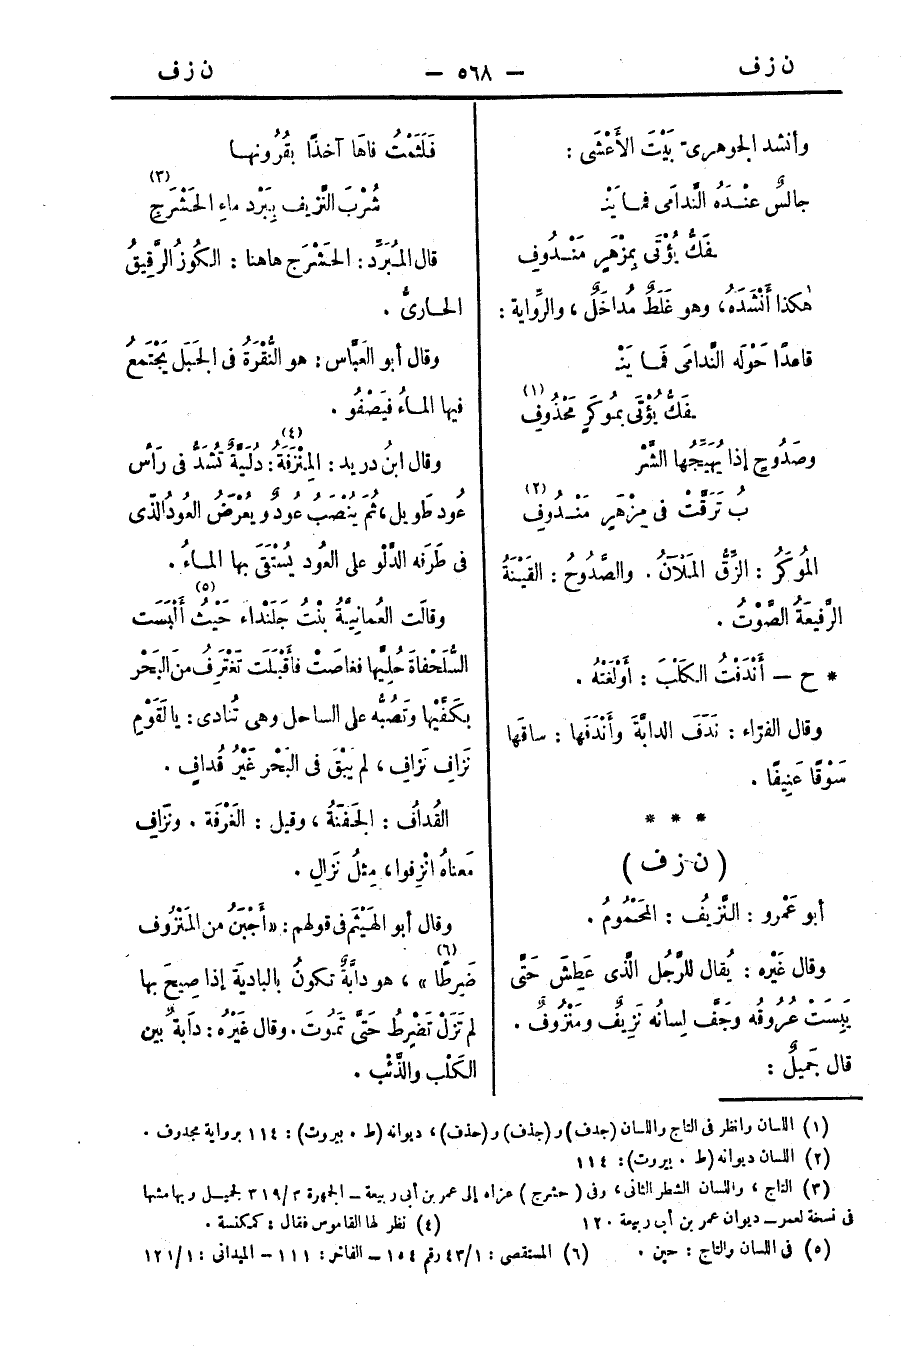 ن ز ف
— ٥٦٨ —
ن ز ف
وأنشد الجوهرىّ بَيْتَ الأَعْشَى :
جالسٌ عنْدَهُ النَّدامَى فمـا يَنْـ
ـفَكُّ يُؤْتَى بِمِزْهَرٍ مَنْـدُوفِ
هٰكذا أَنْشَدَهُ، وهو غَلَطٌ مُداخَلٌ ، والرِّواية :
قاعدًا حَوْلَه النَّدامَى فَمـا يَنْـ
ـفَكُّ يُؤْتَى بمُوكَرٍ مَجْذُوفِ (١)
وصَدُوحٍ إذا يُهَيِّجُها الشَّرْ
بُ تَرَقَّتْ فى مِزْهَرٍ مَنْـدُوفِ (٢)
المُوكَرُ : الزِّقُّ المَلْآنُ . والصَّدُوحُ : القَيْنَةُ
الرَّفيعَةُ الصَّوْتُ .
* ح — أَنْدَفْتُ الكَلْبَ : أَوْلَغْتُهُ .
وقال الفرّاء : نَدَفَ الدابَّةَ وأَنْدَفَها : ساقَها
سَوْقًا عَنِيفًا .
* * *
( ن ز ف )
أبو عَمْرو : النَّزِيفُ : المَحْمُومُ .
وقال غَيْره : يُقال للرَّجُل الَّذى عَطِشَ حَتَّى
يَبِسَتْ عُرُوقُه وجَفَّ لِسانُه نَزِيفٌ ومَنْزُوفٌ .
قال جَميلٌ :
فَلَثَمْتُ فاهَا آخذًا بقُرُونهـا
شُرْبَ النَّزِيف بِبَرْد ماءِ الحَشْرَجِ (٣)
قال المُبَرِّد : الحَشْرَج هاهنا : الكُوزُ الرَّقِيقُ
الحـارىُّ .
وقال أبو العَبَّاس : هو النُّقْرَةُ فى الجَبَل يَجْتَمعُ
فيها المـاءُ فيَصْفُو .
وقال ابنُ دريد : المِنْزَفَةُ (٤) : دُلَيَّةٌ تُشَدُّ فى رَأْس
عُود طَويل ، ثمّ يُنْصَبُ عُودٌ و يُعَرَّضُ العُودُ الَّذى
فى طَرَفه الدَّلْو على العُود يُسْتَقَى بها المـاءُ .
وقالَت العُمانِيَّةُ بنْتُ جَلَنْداء حَيْثُ (٥) أَلْبَسَت
السُّلَحْفاةَ حُلِيَّها فغاصَتْ فأَقْبَلَت تَغْتَرِفُ منَ البَحْر
بكَفَّيْها وتَصُبُّه على الساحل وهى تُنادى : يا لَقَوْمِ
نَزافِ نَزافِ ، لم يَبْقَ فى البَحْر غَيْرُ قُدافٍ .
القُدافُ : الجَفْنَةُ ، وقيل : الغَرْفَة . ونَزافِ
مَعناهُ انْزِفوا، مِثلُ نَزالِ .
وقال أبو الهَيْثم فى قولهم : «أَجْبَنُ من المَنْزُوف
ضَرِطًا » (٦) ، هو دابَّةٌ تكونُ بالبادية إذا صِيحَ بها
لم تَزَلْ تَضْرِطُ حتَّى تَمُوتَ . وقال غَيْرُه : دَابةٌ بين
الكَلْب والذِّئْب .
(١) اللسان وانظر فى التاج واللسان (جدف) و (جذف) و (حذف) ، ديوانه (ط . بيروت) : ١١٤ برواية مجدوف .
(٢) اللسان ديوانه (ط . بيروت): ١١٤
(٣) التاج ، واللسان الشطر الثانى، وفى ( حشرج ) عزاه إلى عمر بن أبى ربيعة – الجمهرة ٣١٩/٣ لجميل وبهامشها
فى نسخة لعمر – ديوان عمر بن أب ربيعة ١٢٠
(٤) نظر لها القاموس فقال : كمكنسة .
(٥) فى اللسان والتاج : حين .
(٦) المستقصى : ٤٣/١ رقم ١٥٤ – الفاخر : ١١١ – الميدانى : ١٢١/١